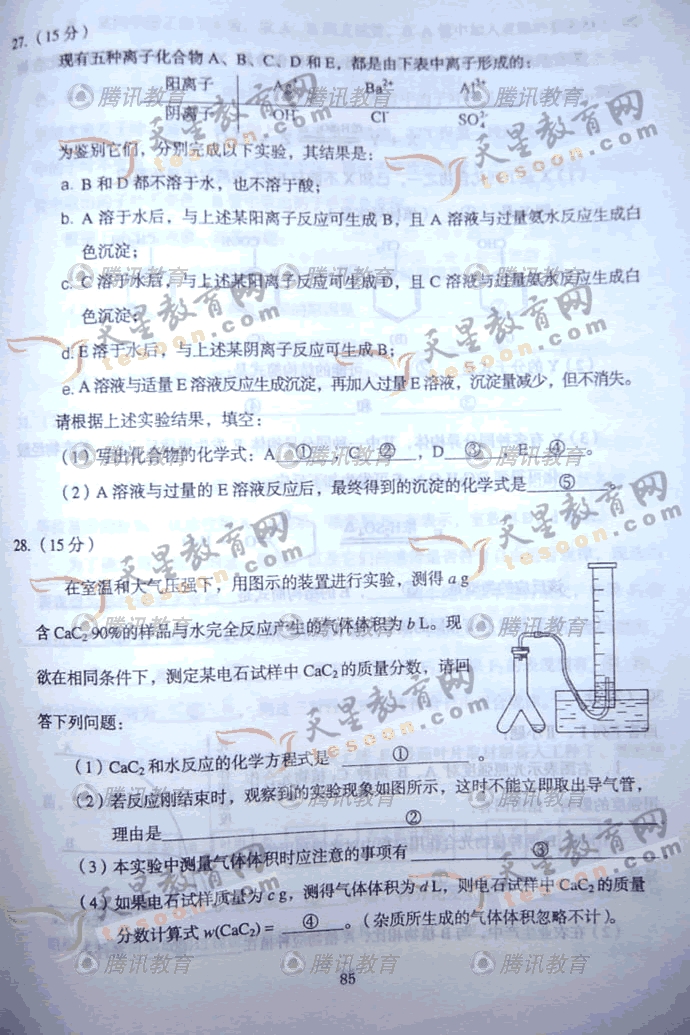 27. (15 分)
现有五种离子化合物 A、B、C、D 和 E，都是由下表中离子形成的：
阳离子 Ag⁺ Ba²⁺ Al³⁺
阴离子 OH⁻ Cl⁻ SO₄²⁻
为鉴别它们，分别完成以下实验，其结果是：
a. B 和 D 都不溶于水，也不溶于酸；
b. A 溶于水后，与上述某阳离子反应可生成 B，且 A 溶液与过量氨水反应生成白
色沉淀；
c. C 溶于水后，与上述某阳离子反应可生成 D，且 C 溶液与过量氨水反应生成白
色沉淀；
d. E 溶于水后，与上述某阴离子反应可生成 B；
e. A 溶液与适量 E 溶液反应生成沉淀，再加入过量 E 溶液，沉淀量减少，但不消失。
请根据上述实验结果，填空：
(1) 写出化合物的化学式：A ① ，C ② ，D ③ ，E ④ 。
(2) A 溶液与过量的 E 溶液反应后，最终得到的沉淀的化学式是 ⑤ 。
28. (15 分)
在室温和大气压强下，用图示的装置进行实验，测得 a g
含 CaC₂ 90%的样品与水完全反应产生的气体体积为 b L。现
欲在相同条件下，测定某电石试样中 CaC₂ 的质量分数，请回
答下列问题：
(1) CaC₂ 和水反应的化学方程式是 ① 。
(2) 若反应刚结束时，观察到的实验现象如图所示，这时不能立即取出导气管，
理由是 ②
(3) 本实验中测量气体体积时应注意的事项有 ③
(4) 如果电石试样质量为 c g，测得气体体积为 d L，则电石试样中 CaC₂ 的质量
分数计算式 w(CaC₂) = ④ 。（杂质所生成的气体体积忽略不计）。
85
腾讯教育
天星教育网
tesoon.com